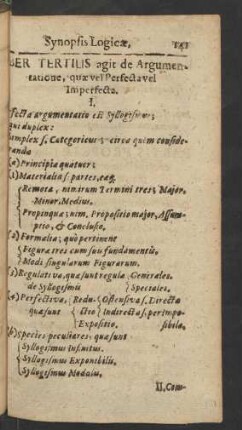 Synopsis Logicæ,
BER TERTIUS agit de Argumen-
tatione, quæ vel Perfecta vel
Imperfecta.
I.
fecta argumentatio est Syllogismus;
qui duplex:
implex s. Categoricus; circa quem conside-
randa
(a) Principia quatuor;
(1) Materialia s. partes, eæq;
Remotæ, nimirum Termini tres, Major,
Minor, Medius.
Propinquæ; nim. Propositio major, Assum-
ptio, & Conclusio.
(2) Formalia; quò pertinent
Figuræ tres cum suis fundamentis.
Modi singularum Figurarum.
(3) Regulativa, quæ sunt regulæ Generales.
de Syllogismis Speciales.
(4) Perfectiva, Redu- Ostensiva s. Directa
quæ sunt ctio Indirecta s. per impos-
Expositio. sibile.
(b) Species peculiares; quæ sunt
Syllogismus Infinitus.
Syllogismus Exponibilis.
Syllogismus Modalis.
II. Com-